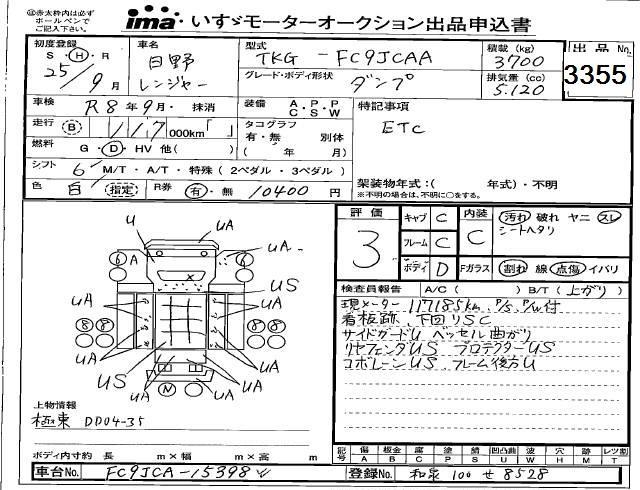 ㊟赤太枠内は必ず
ボールペンで
ご記入下さい。
ima いすゞモーターオークション出品申込書
初度登録 S・H・R 25/9月
車名 日野 レンジャー
型式 TKG - FC9JCAA
グレード・ボディ形状 ダンプ
積載(kg) 3700
排気量(cc) 5.120
出品No. 3355
車検 R8年9月・抹消
装備 A・P・P C・S・W
特記事項
ETC
走行 B 117 000km「 」
タコグラフ 有・無 別体 ( 年 月)
燃料 G・D・HV 他( )
シフト 6 M/T・A/T・特殊(2ペダル・3ペダル)
架装物年式:( 年式)・不明
※不明の場合は、不明に○をする。
色 白 指定 R券 有・無 10400円
評価 3
キャブ C
フレーム C
ボディ D
内装 C
汚れ 破れ ヤニ スレ
シートヘタリ
Fガラス 割れ 線 点傷 イバリ
検査員報告 A/C( ) B/T(上がり)
現メーター117185km, P/S, P/W付
看板跡、下回りSC
サイドガードU ベッセル曲がり
リヤフェンダUS プロテクターUS
コボレーンUS フレーム後方U
U UA UA UA US UA UA UA UA UA US UA U
6 A 6 A 8 8 8 8 N
上物情報
極東 DD04-35
ボディ内寸約 長 m×幅 m×高 m
記号 傷A 板金B 腐C 歪P 錆S 凹凸曲U 波W 穴H 跡M レンズ割T
車台No. FC9JCA-15398
登録No. 和泉 100 せ 8528